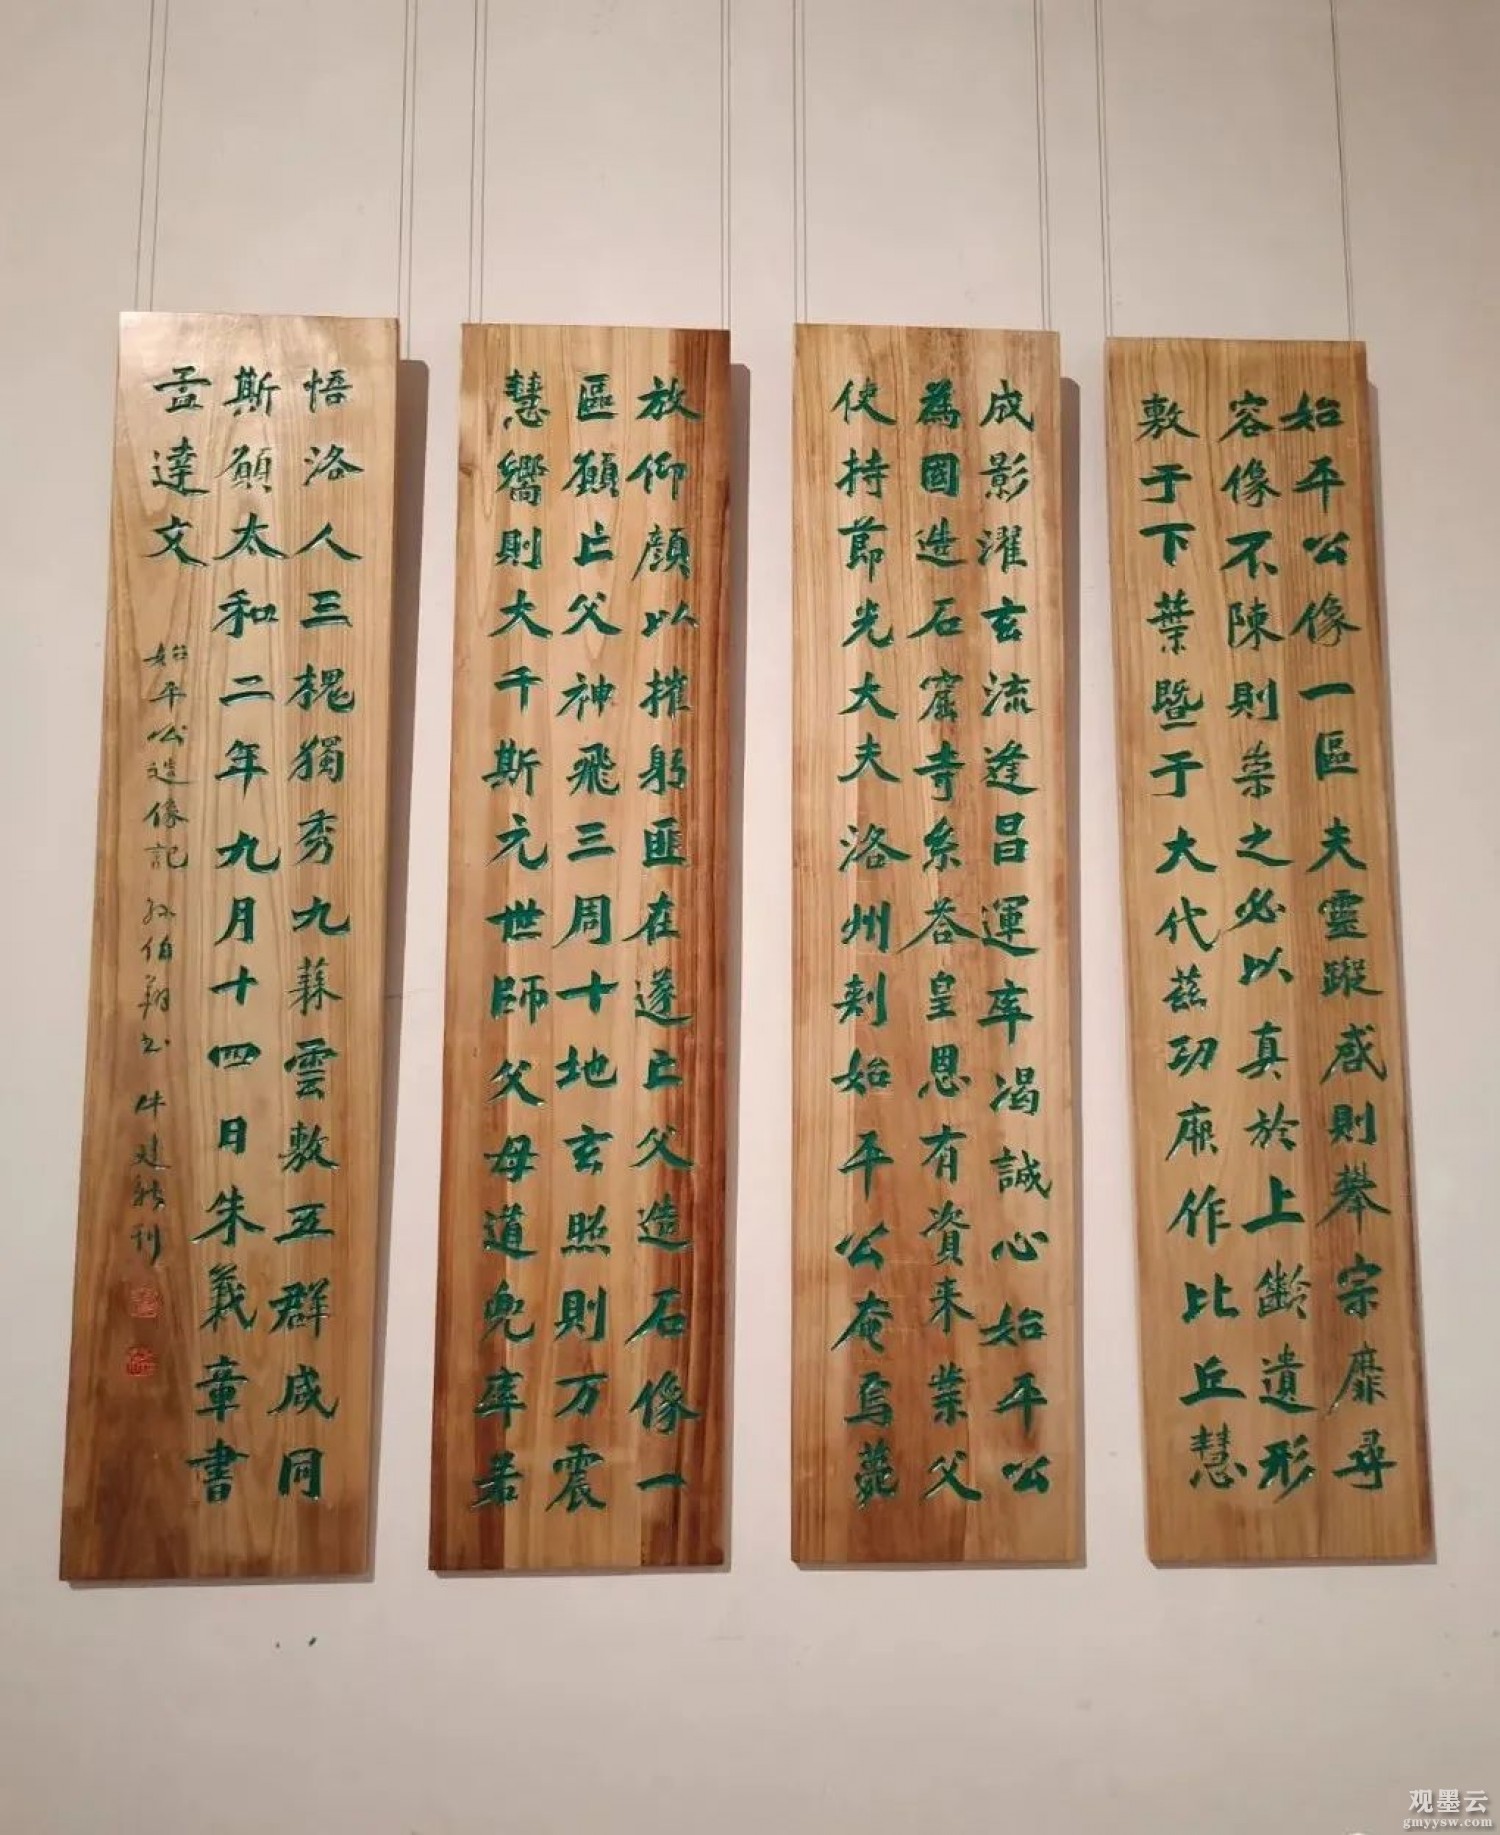 始平公像一區夫靈蹤感則攀宗靡尋
容像不陳則崇之必以真於上齡遺形
敷于下葉暨于大代茲功厥作比丘慧
成影濯玄流逢昌運率渴誠心始平公
為國造石窟寺系答皇恩有資来業父
使持節光大夫洛州刺始平公奄焉薨
放仰顏以摧躬匪在遂亡父造石像一
區願亡父神飛三周十地玄照則万震
慧嚮則大千斯元世師父母道兜率若
悟洛人三槐獨秀九蕀雲敷五群咸同
斯願太和二年九月十四日朱義章書
孟達文
始平公造像記 孙伯翔书 牛建刊
观墨云
gmyysw.com